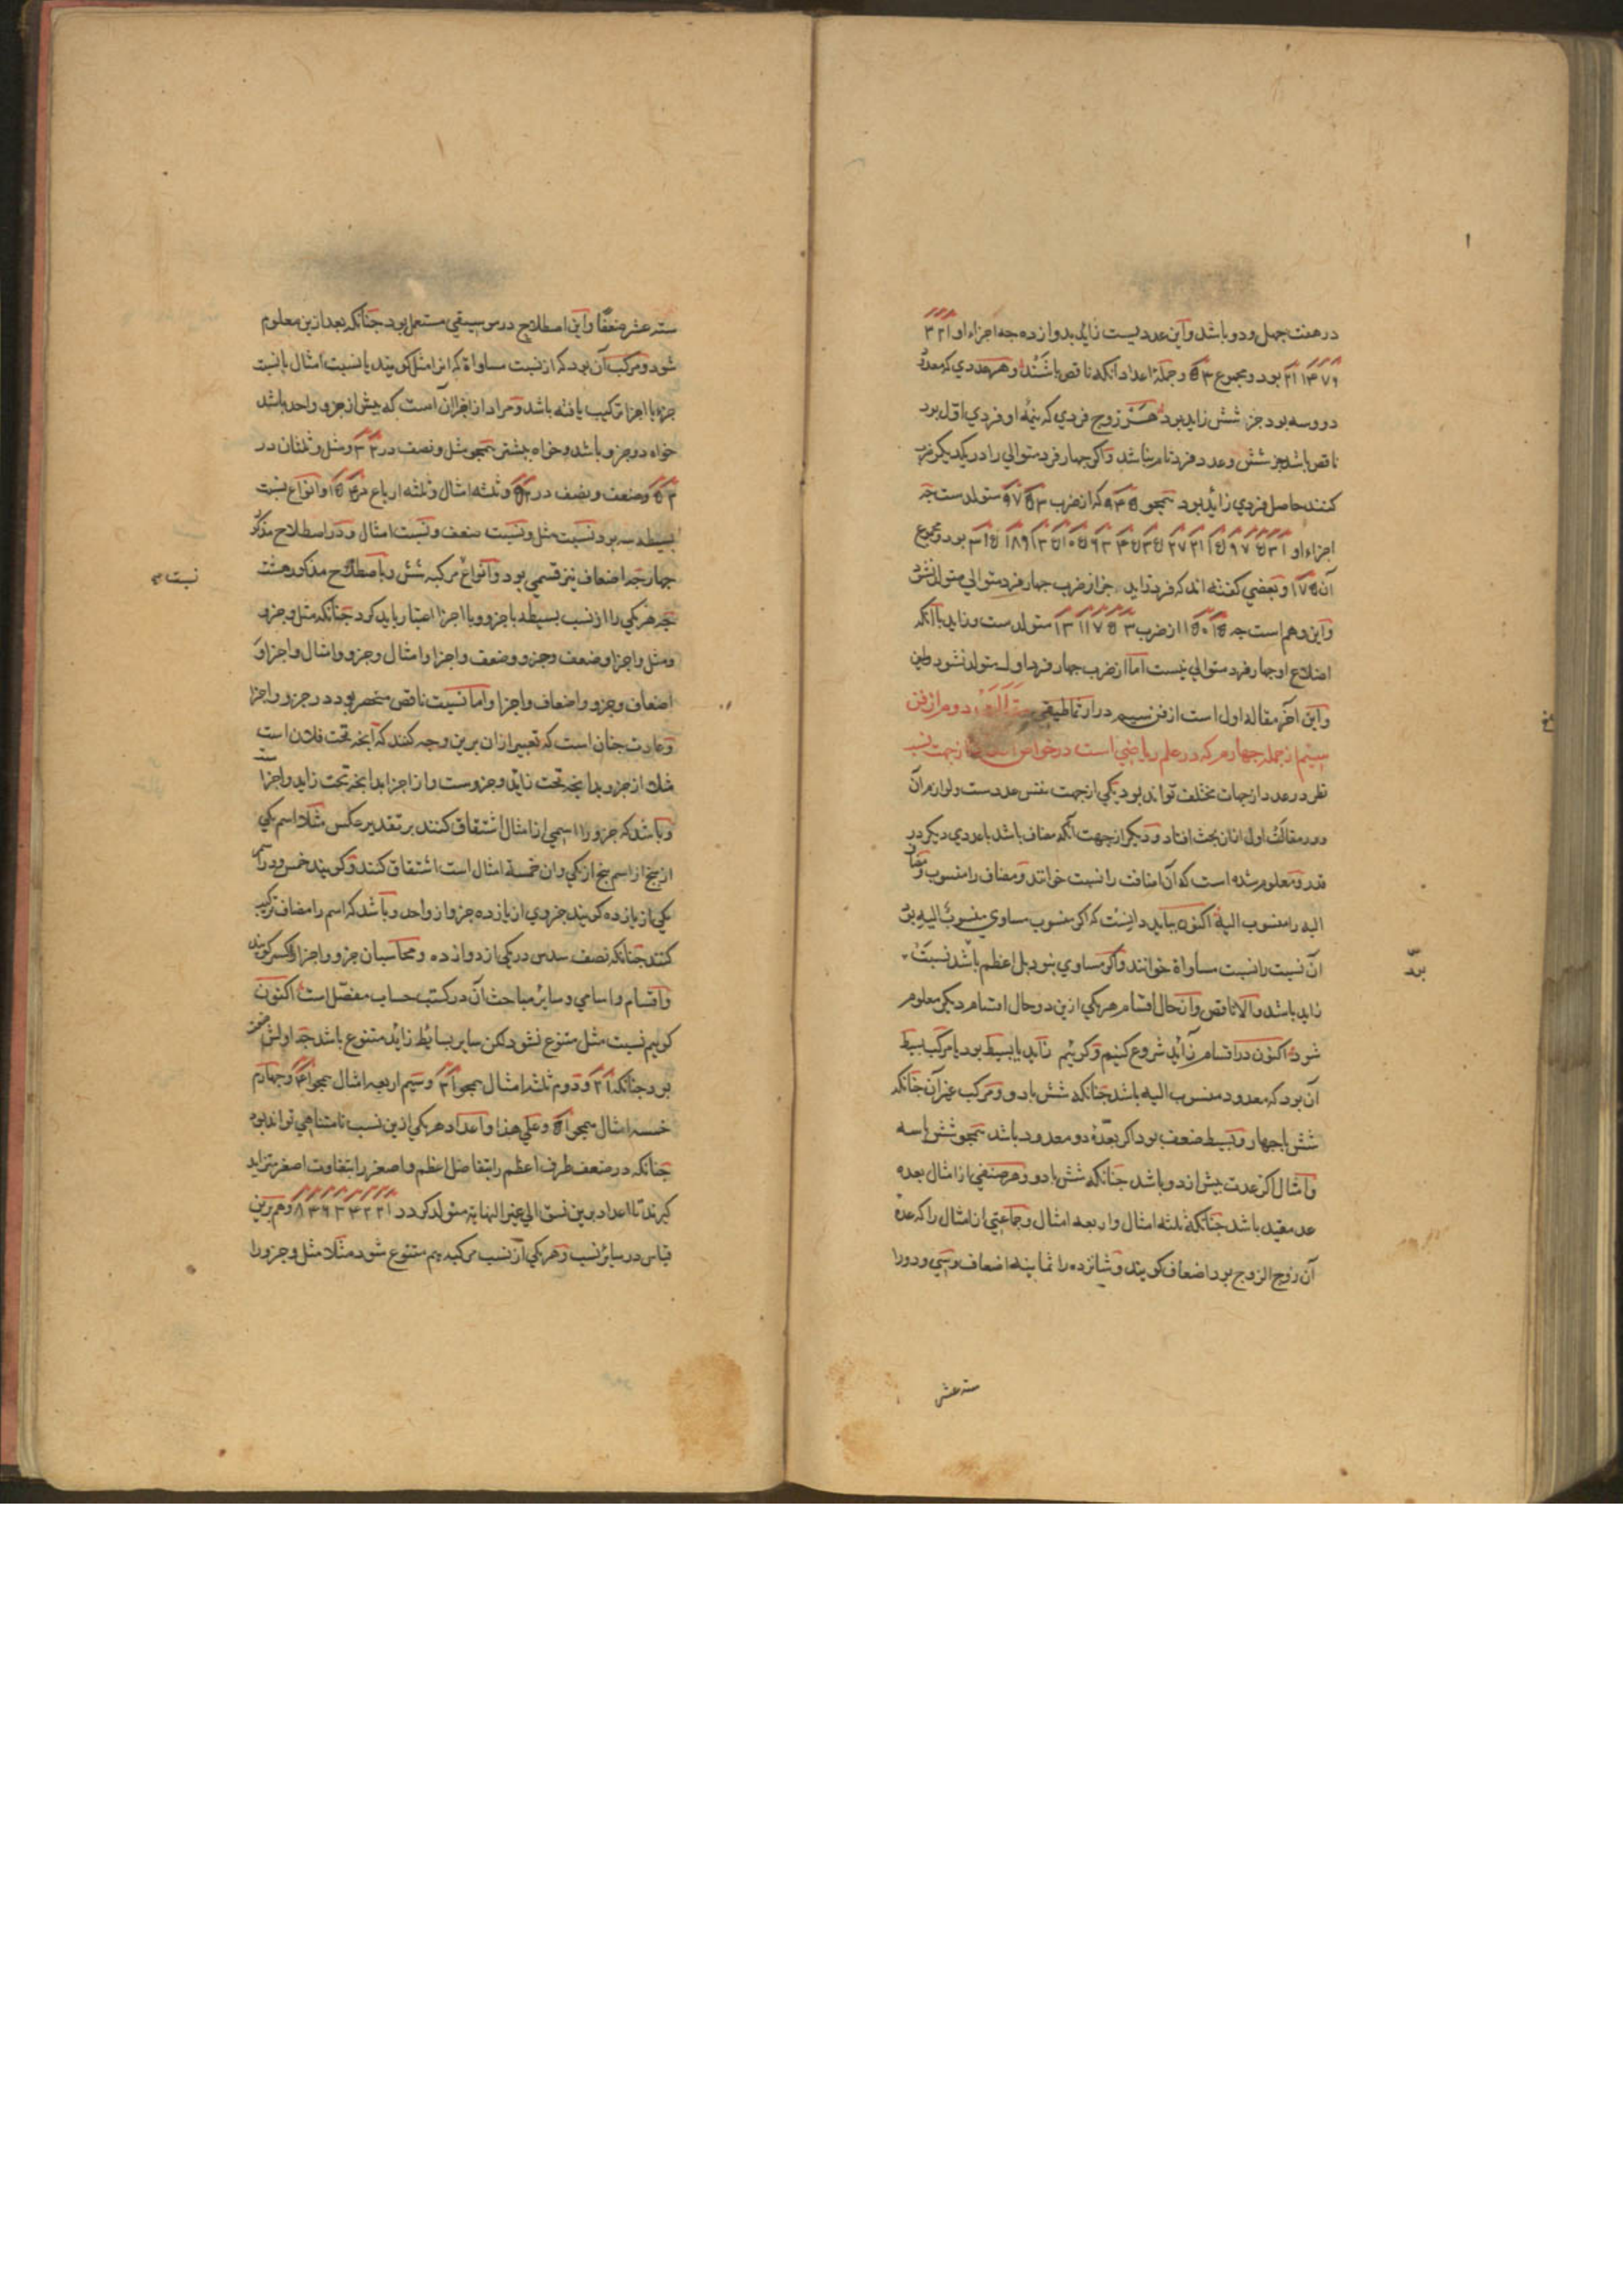 در هفت چهل و دو باشد و این عددیست زاید بدوازده چه اجزاء او ۱ ۲ ۳
۶ ۷ ۱۴ ۲۱ بود و مجموع ۵۴ و جمله اعداد آنکه ناقص باشند و هر عددی که معدود
دو و سه بود جز شش زاید بود هر زوج فردی که نیمه او فردی اول بود
ناقص باشد جز شش و عدد فرد تام نباشد و اگر چهار فرد متوالی را در یکدیگر ضرب
کنند حاصل فردی زاید بود همچو ۹۴۵ که از ضرب ۳ ۵ ۷ ۹ متولدست چه
اجزاء او ۱ ۳ ۵ ۷ ۹ ۱۵ ۲۱ ۲۷ ۳۵ ۴۵ ۶۳ ۱۰۵ ۱۳۵ ۱۸۹ ۳۱۵ بود و مجموع
آن ۹۷۵ و بعضی گفته اند که فرد زاید جز از ضرب چهار فرد متوالی متولد نشود
و این وهم است چه ۱۵۰۱۵ از ضرب ۳ ۵ ۷ ۱۱ ۱۳ متولد ست و زاید با آنکه
اضلاع او چهار فرد متوالی نیست اما از ضرب چهار فرد اول متولد نشود
و این آخر مقاله اول است از فن سیم در ارثماطیقی مقالت دوم از فن
سیم از جمله چهارم که در علم ریاضی است در خواص از جهت نسب
نظر در عدد از جهات مختلف تواند بود یکی از جهت نفس عددست و لوازم آن
و در مقالت اول ازان بحث افتاد و دیگر از جهت آنکه مضاف باشد با عددی دیگر در
قدر و معلوم شده است که آن اضافت را نسبت خوانند و مضاف را منسوب و مضاف
الیه را منسوب الیه اکنون بباید دانست که اگر منسوب مساوی منسوب الیه بود
آن نسبت را نسبت مساواة خوانند و اگر مساوی نبود بل اعظم باشد نسبت
زاید باشد و الا ناقص و انحال اقسام هر یکی ازین دو حال اقسام دیگر معلوم
شود اکنون در اقسام زاید شروع کنیم و گوئیم زاید یا بسیط بود یا مرکب بسیط
آن بود که معدود منسوب الیه باشد چنانکه شش با دو و مرکب غیر آن چنانکه
شش با چهار و بسیط ضعف بود اگر بعده دو معدود باشد همچو شش با سه
و امثال اگر عدت بیش از دو باشد چنانکه شش با دو و هر صنفی از امثال بعده
عد مقید باشد چنانکه ثلثه امثال و اربعه امثال و جماعتی از امثال را که عده
آن زوج الزوج بود اضعاف گویند و شانزده را ثمانیه اضعاف و سی و دو را
سته عشر
بود
سته عشر ضعفا و این اصطلاح در موسیقی مستعمل بود چنانکه بعد ازین معلوم
شود و مرکب آن بود که از نسبت مساواة که انرا مثل گویند یا نسبت امثال یا نسبت
جزو یا اجزا ترکیب یافته باشد و مراد از اجزا آن است که بیش از جزو واحد باشد
خواه دو جزو باشد و خواه بیشتر همچو مثل و نصف در ۳ ۲ و مثل و ثلثان در
۵ ۳ و ضعف و نصف در ۵ ۲ و ثلثه امثال و ثلثه ارباع در ۱۵ ۴ و انواع نسبت
بسیطه سه بود نسبت مثل و نسبت ضعف و نسبت امثال و در اصطلاح مذکور
چهار چه اضعاف نیز قسمی بود و انواع مرکبه شش و باصطلاح مذکور هشت
چه هر یکی را از نسب بسیطه با جزو و با اجزا اعتبار باید کرد چنانکه مثل و جزو
و مثل و اجزا و ضعف و جزو و ضعف و اجزا و امثال و جزو و امثال و اجزا و
اضعاف و جزو و اضعاف و اجزا و اما نسبت ناقص منحصر بود در جزو و اجزا
و عادت چنان است که تعبیر ازان برین وجه کنند که آنچه تحت فلان است
مثلا از جزو بدانچه تحت زاید و جزوست و از اجزا بدانچه تحت زاید و اجزا
و باشد که جزو را اسمی از امثال اشتقاق کنند بر تقدیر عکس مثلا اسم یکی
از پنج از اسم پنج از یکی و ان خمسه امثال است اشتقاق کنند و گویند خمس و در اسم
یکی از یازده گویند جزوی از یازده جزو از واحد و باشد که اسم را مضاف ترکیب
کنند چنانکه نصف سدس در یکی از دوازده و محاسبان جزو و اجزا را کسر گویند
و اقسام و اسامی و سایر مباحث آن در کتب حساب مفصل است اکنون
گوییم نسبت مثل متنوع نشود لکن سایر بسایط زاید متنوع باشد چه اولش ضعف
بود چنانکه ۲ ۱ و دوم ثلثه امثال همچو ۳ ۱ و سیم اربعه امثال همچو ۴ ۱ و چهارم
خمسه امثال همچو ۵ ۱ و علی هذا و اعداد هر یکی ازین نسب نامتناهی تواند بود
چنانکه در ضعف طرف اعظم را بتفاضل اعظم و اصغر را بتفاوت اصغر بتزاید
گیرند تا اعداد برین نسق الی غیر النهایه متولد گردد ۱ ۲ ۲ ۴ ۳ ۶ ۴ ۸ و هم برین
قیاس در سایر نسب و هر یکی از نسب مرکبه هم متنوع شود مثلا مثل و جزو را
نسبت